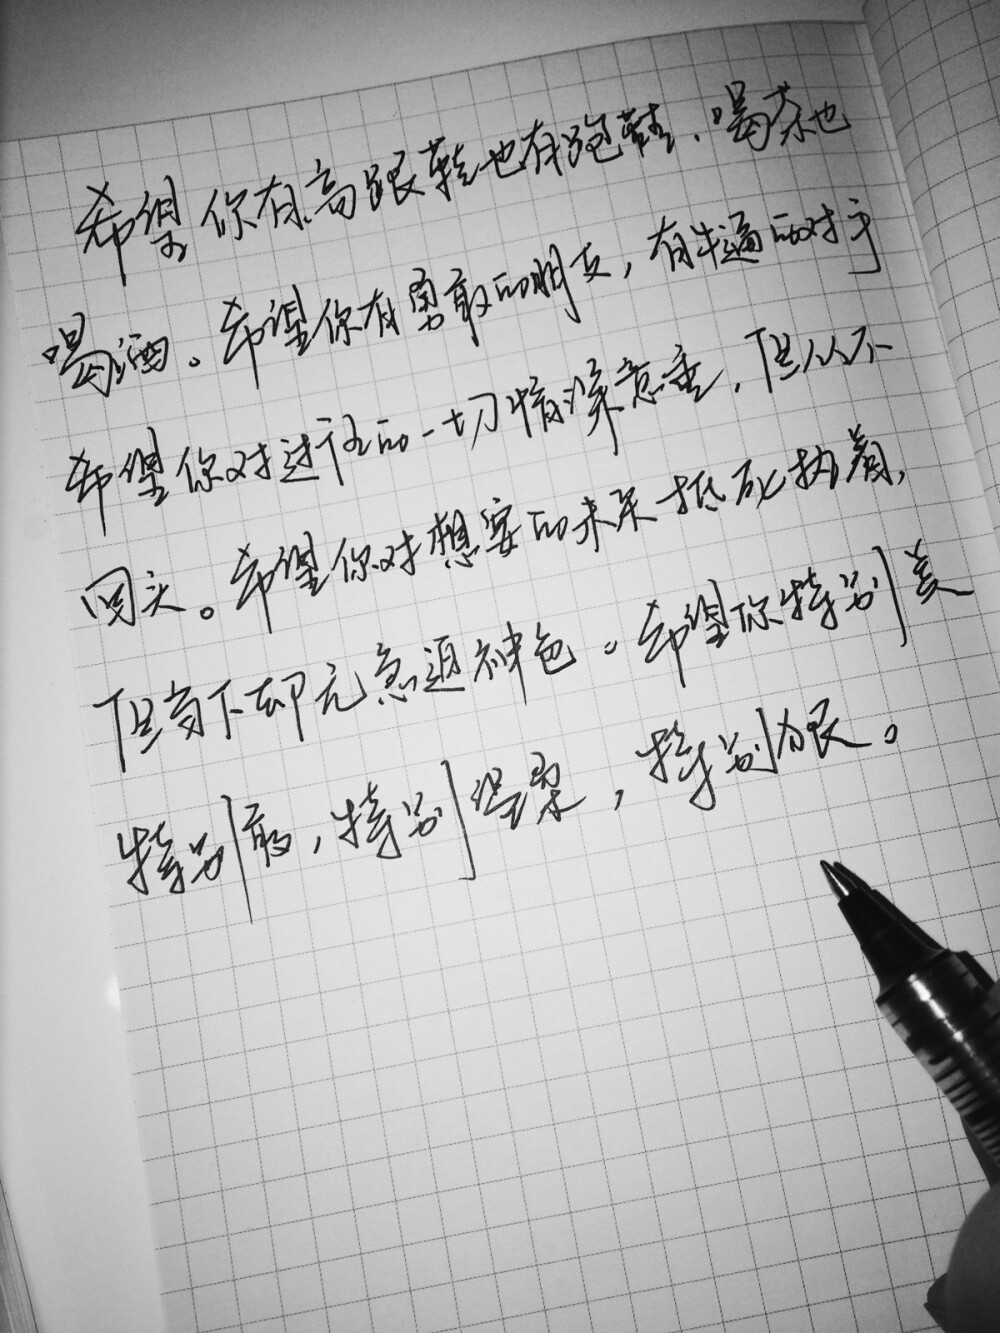 希望你有高跟鞋也有跑鞋、喝茶也
喝酒。希望你有勇敢的朋友，有牛逼的对手
希望你对过往的一切情深意重，但从不
回头。希望你对想要的未来抵死执着，
但当下却无急迫神色。希望你特别美
特别飒，特别温柔，特别狠。